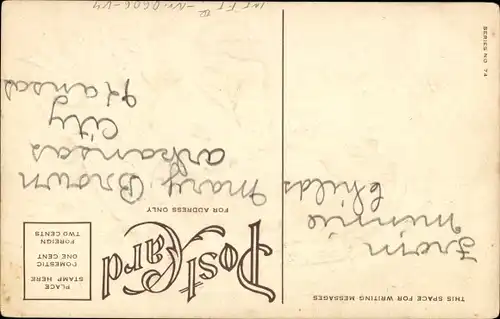 THIS SPACE FOR WRITING MESSAGES
SERIES NO 74
Post Card
FOR ADDRESS ONLY
PLACE
STAMP HERE
DOMESTIC
ONE CENT
FOREIGN
TWO CENTS
From
Minnie
Childs
Mary Brown
Arkansas
City
Kansas